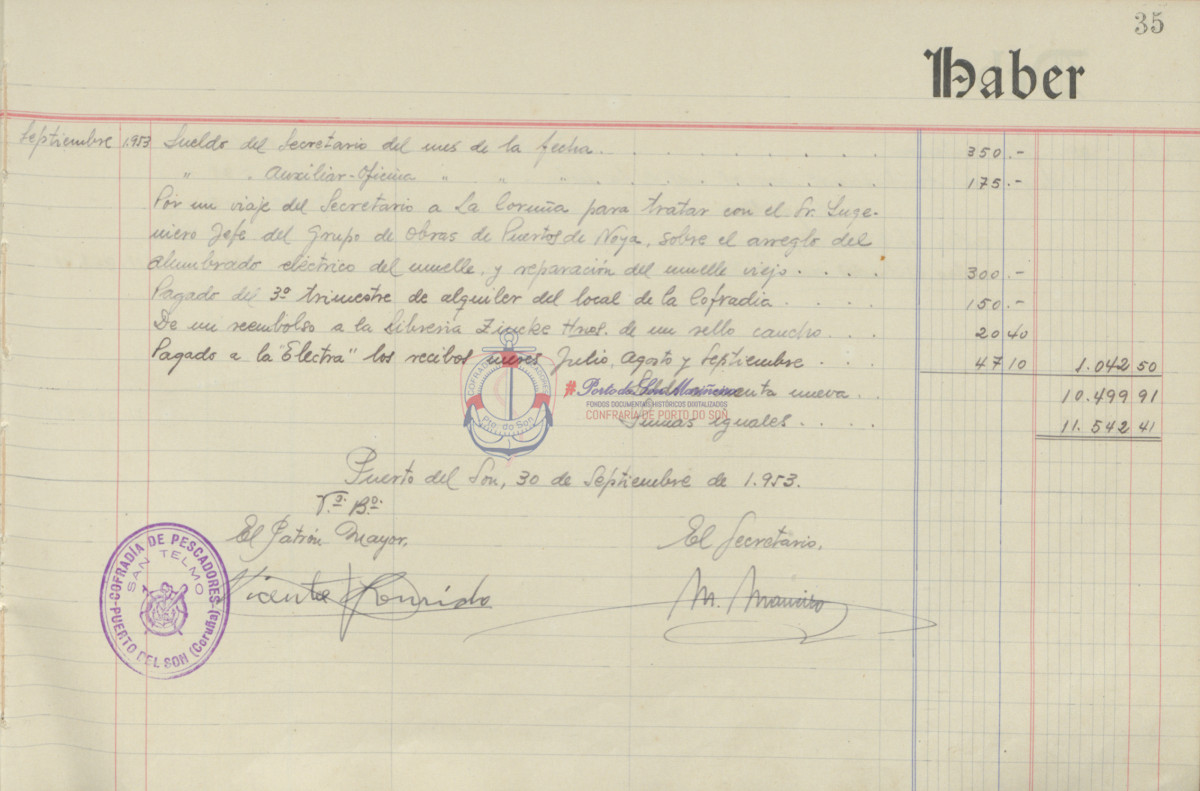 35
Haber
Septiembre 1.953 Sueldo del Secretario del mes de la fecha. . . . . . . . . 350.-
" " Auxiliar-Oficina " " " . . . . . . . . . 175.-
Por un viaje del Secretario a La Coruña para tratar con el Sr. Inge-
niero Jefe del Grupo de Obras de Puertos de Noya, sobre el arreglo del
alumbrado eléctrico del muelle, y reparación del muelle viejo. . . . 300.-
Pagado del 3º trimestre de alquiler del local de la Cofradía. . . . . 150.-
De un reembolso a la Librería Zincke Hnos. de un sello caucho. . . 20 40
Pagado a la "Electra" los recibos meses Julio, Agosto y Septiembre . . . 47 10 1.042 50
cuenta nueva. . . 10.499 91
Sumas iguales. . . . . 11.542 41
COFRARÍA PESCADORES
Pto. do Son
#Porto do Son Mariñeiro
FONDOS DOCUMENTAIS HISTÓRICOS DIGITALIZADOS
CONFRARÍA DE PORTO DO SON
Puerto del Son, 30 de Septiembre de 1.953.
V.º B.º
El Patrón Mayor, El Secretario,
Vicente M. Maneiro
COFRADÍA DE PESCADORES
SAN TELMO
PUERTO DEL SON (Coruña)